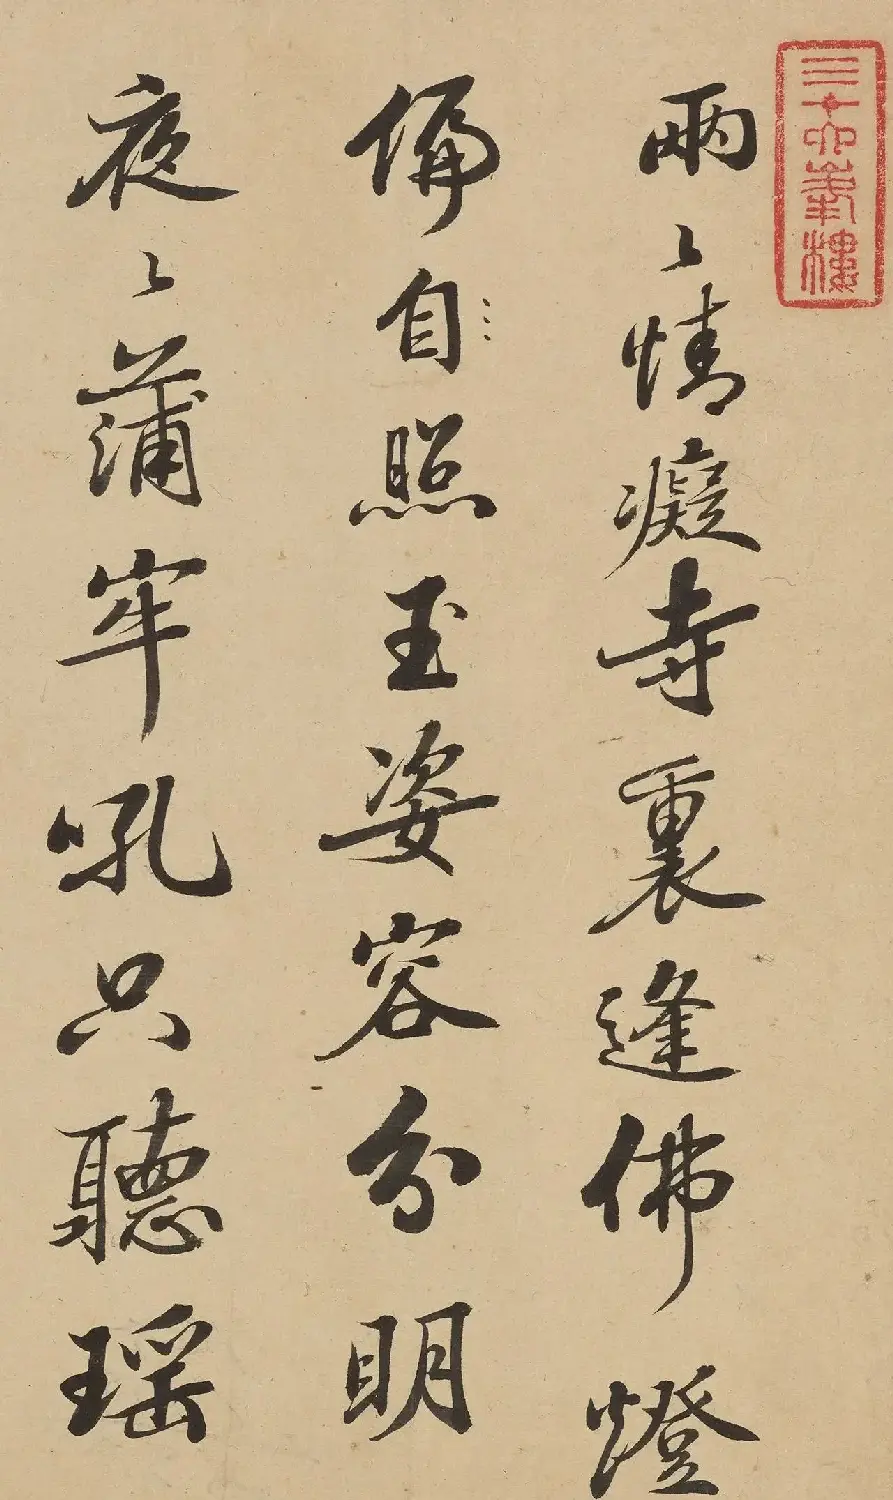 三十六峯樓
兩〻情癡寺裏逢佛燈
偏自照玉姿容分明
夜〻蒲牢吼只聽瑶